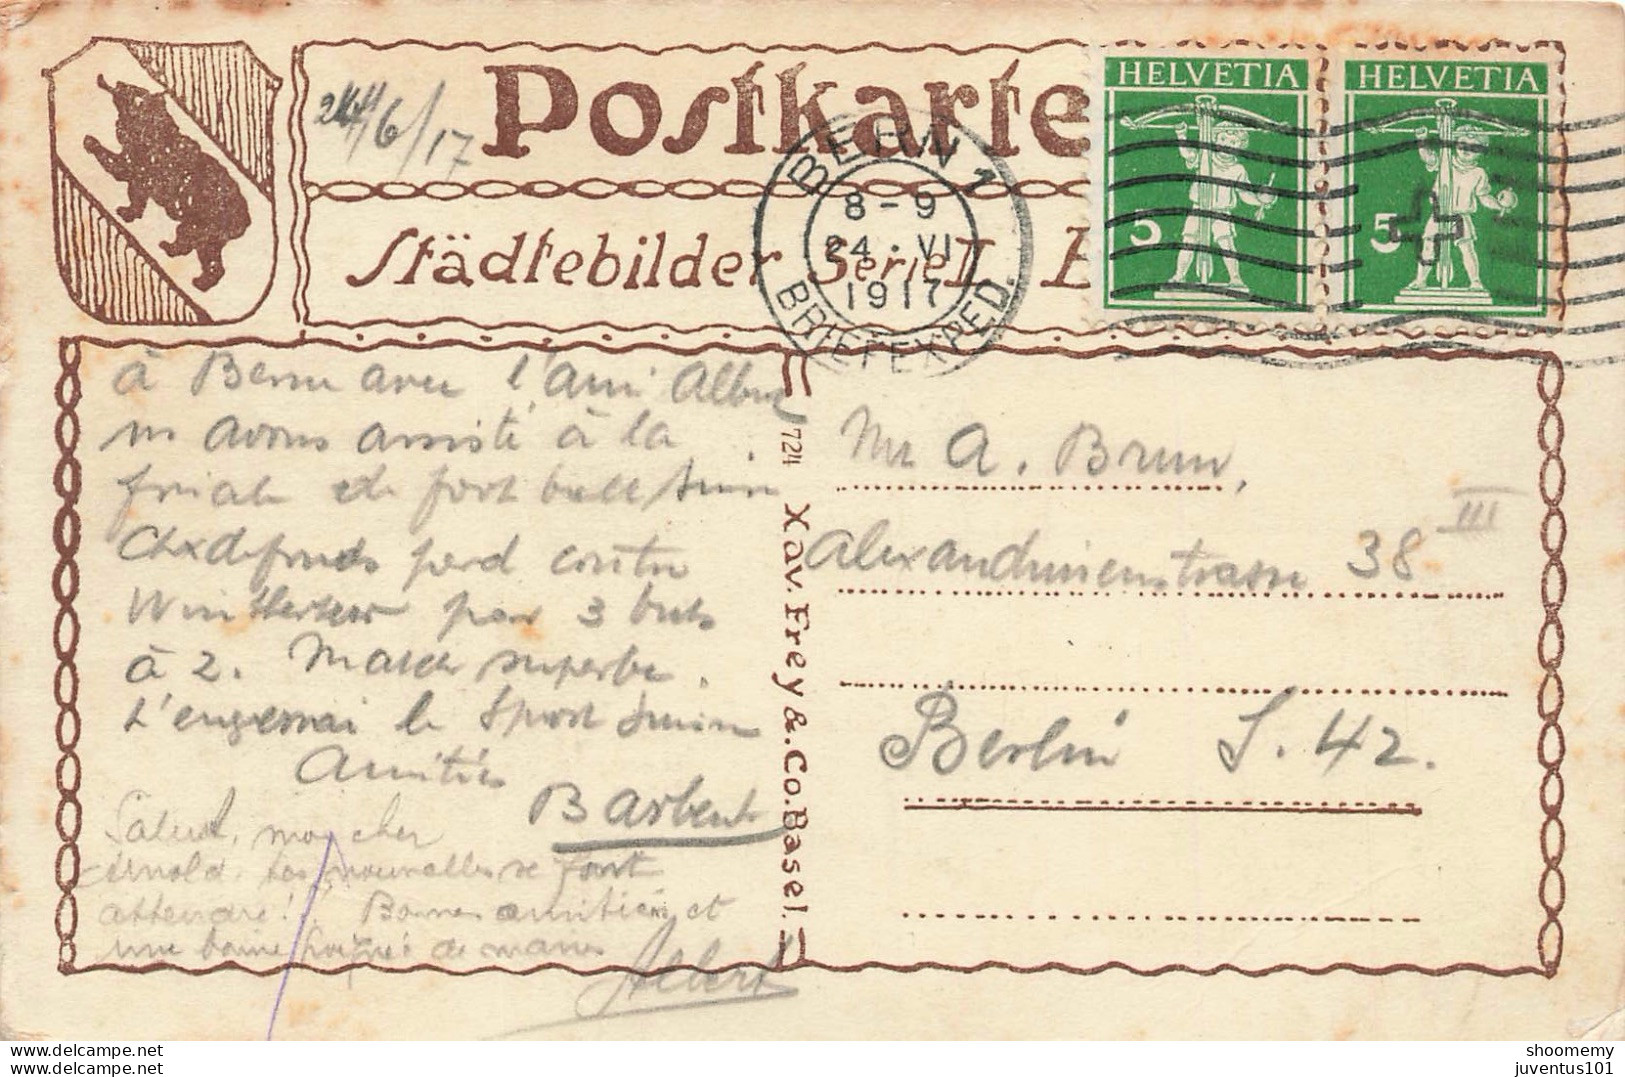 Postkarte
24/6/17
Städtebilder Serie II
HELVETIA
5
HELVETIA
5
BERN 1
8-9
24.VI
1917
BRIEFEXPED.
à Berne avec l'ami Albert
ns avons assisté à la
finale de foot ball suisse
Chxdefonds perd contre
Winterthur par 3 buts
à 2. Match superbe.
le Sport suisse
Amitiés
Barbent
Salut, mon cher
Arnold. Les nouvelles se font
attendre! Bonnes amitiés et
une bonne poignée de mains
Albert
724 Xav. Frey & Co. Basel.
Mr A. Brun,
Alexandrinenstrasse 38 III
Berlin S. 42.
shoomemy
juventus101